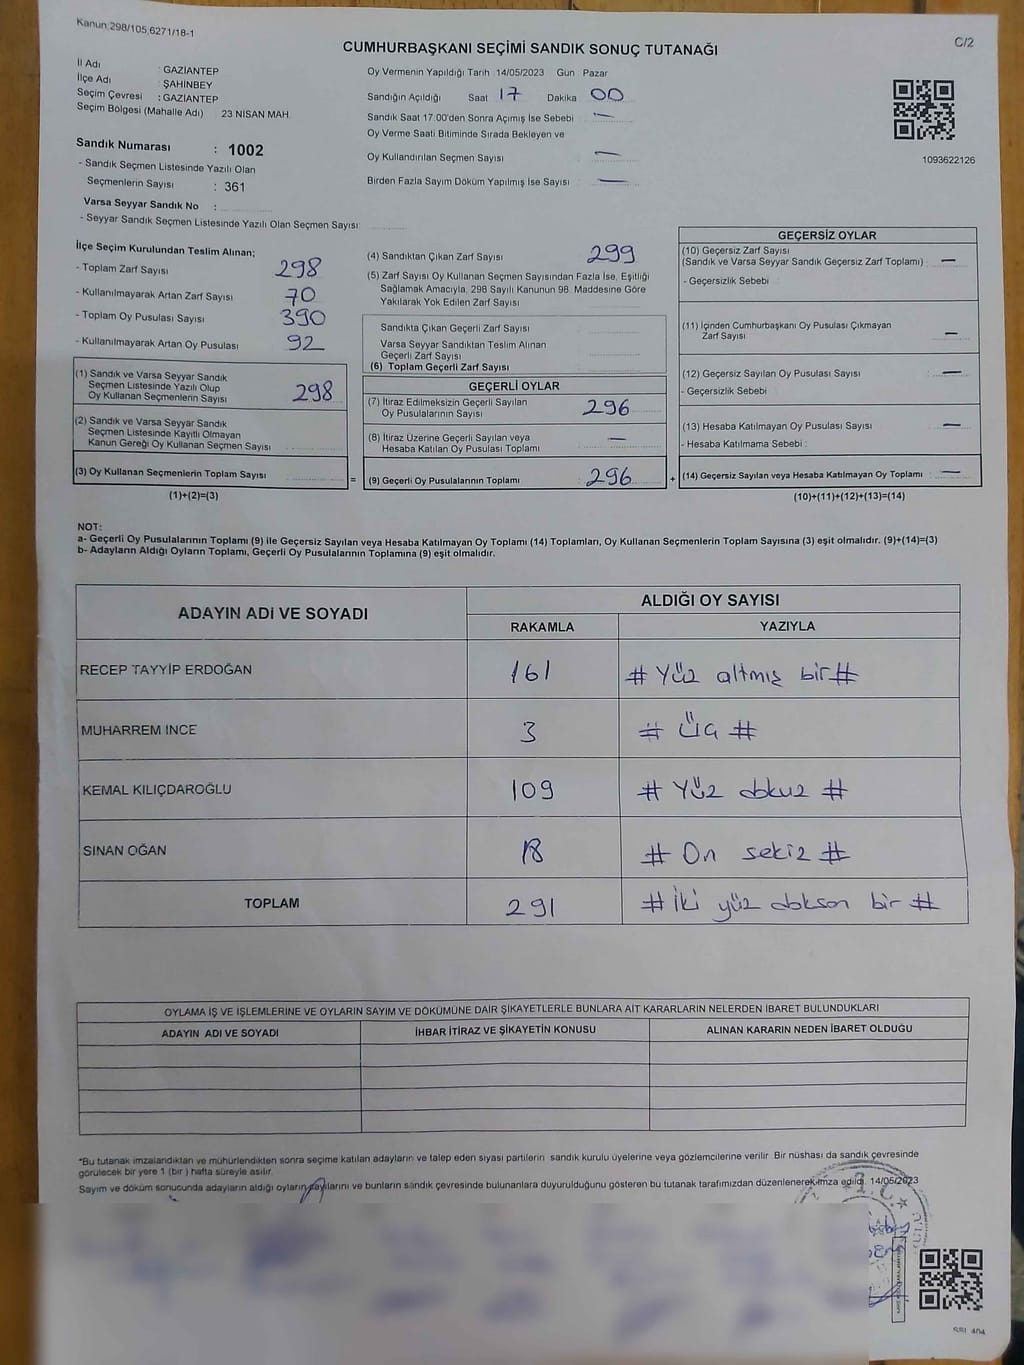 Kanun:298/105,6271/18-1
C/2
CUMHURBAŞKANI SEÇİMİ SANDIK SONUÇ TUTANAĞI
İl Adı : GAZİANTEP
İlçe Adı : ŞAHİNBEY
Seçim Çevresi : GAZİANTEP
Seçim Bölgesi (Mahalle Adı) : 23 NİSAN MAH.
Sandık Numarası : 1002
- Sandık Seçmen Listesinde Yazılı Olan
Seçmenlerin Sayısı : 361
Varsa Seyyar Sandık No :
- Seyyar Sandık Seçmen Listesinde Yazılı Olan Seçmen Sayısı:
Oy Vermenin Yapıldığı Tarih :14/05/2023 Gün : Pazar
Sandığın Açıldığı Saat 17 Dakika 00
Sandık Saat 17:00'den Sonra Açımış İse Sebebi : —
Oy Verme Saati Bitiminde Sırada Bekleyen ve
Oy Kullandırılan Seçmen Sayısı : —
Birden Fazla Sayım Döküm Yapılmış İse Sayısı : —
1093622126
İlçe Seçim Kurulundan Teslim Alınan;
- Toplam Zarf Sayısı : 298
- Kullanılmayarak Artan Zarf Sayısı : 70
- Toplam Oy Pusulası Sayısı : 390
- Kullanılmayarak Artan Oy Pusulası : 92
(1) Sandık ve Varsa Seyyar Sandık
Seçmen Listesinde Yazılı Olup
Oy Kullanan Seçmenlerin Sayısı : 298
(2) Sandık ve Varsa Seyyar Sandık
Seçmen Listesinde Kayıtlı Olmayan
Kanun Gereği Oy Kullanan Seçmen Sayısı :
(3) Oy Kullanan Seçmenlerin Toplam Sayısı : =
(1)+(2)=(3)
(4) Sandıktan Çıkan Zarf Sayısı : 299
(5) Zarf Sayısı Oy Kullanan Seçmen Sayısından Fazla İse, Eşitliği
Sağlamak Amacıyla, 298 Sayılı Kanunun 98. Maddesine Göre
Yakılarak Yok Edilen Zarf Sayısı :
Sandıkta Çıkan Geçerli Zarf Sayısı :
Varsa Seyyar Sandıktan Teslim Alınan
Geçerli Zarf Sayısı :
(6) Toplam Geçerli Zarf Sayısı :
GEÇERLİ OYLAR
(7) İtiraz Edilmeksizin Geçerli Sayılan
Oy Pusulalarının Sayısı : 296
(8) İtiraz Üzerine Geçerli Sayılan veya
Hesaba Katılan Oy Pusulası Toplamı : —
(9) Geçerli Oy Pusulalarının Toplamı : 296 +
GEÇERSİZ OYLAR
(10) Geçersiz Zarf Sayısı
(Sandık ve Varsa Seyyar Sandık Geçersiz Zarf Toplamı) : —
- Geçersizlik Sebebi :
(11) İçinden Cumhurbaşkanı Oy Pusulası Çıkmayan
Zarf Sayısı : —
(12) Geçersiz Sayılan Oy Pusulası Sayısı : —
- Geçersizlik Sebebi :
(13) Hesaba Katılmayan Oy Pusulası Sayısı : —
- Hesaba Katılmama Sebebi :
(14) Geçersiz Sayılan veya Hesaba Katılmayan Oy Toplamı : —
(10)+(11)+(12)+(13)=(14)
NOT:
a- Geçerli Oy Pusulalarının Toplamı (9) ile Geçersiz Sayılan veya Hesaba Katılmayan Oy Toplamı (14) Toplamları, Oy Kullanan Seçmenlerin Toplam Sayısına (3) eşit olmalıdır. (9)+(14)=(3)
b- Adayların Aldığı Oyların Toplamı, Geçerli Oy Pusulalarının Toplamına (9) eşit olmalıdır.
ADAYIN ADI VE SOYADI
ALDIĞI OY SAYISI
RAKAMLA YAZIYLA
RECEP TAYYİP ERDOĞAN 161 # Yüz altmış bir #
MUHARREM İNCE 3 # Üç #
KEMAL KILIÇDAROĞLU 109 # Yüz dokuz #
SİNAN OĞAN 18 # On sekiz #
TOPLAM 291 # İki yüz doksan bir #
OYLAMA İŞ VE İŞLEMLERİNE VE OYLARIN SAYIM VE DÖKÜMÜNE DAİR ŞİKAYETLERLE BUNLARA AİT KARARLARIN NELERDEN İBARET BULUNDUKLARI
ADAYIN ADI VE SOYADI İHBAR İTİRAZ VE ŞİKAYETİN KONUSU ALINAN KARARIN NEDEN İBARET OLDUĞU
*Bu tutanak imzalandıktan ve mühürlendikten sonra seçime katılan adayların ve talep eden siyasi partilerin sandık kurulu üyelerine veya gözlemcilerine verilir. Bir nüshası da sandık çevresinde
görülecek bir yere 1 (bir ) hafta süreyle asılır.
Sayım ve döküm sonucunda adayların aldığı oyların sayılarını ve bunların sandık çevresinde bulunanlara duyurulduğunu gösteren bu tutanak tarafımızdan düzenlenerek imza edildi. 14/05/2023
T.C.